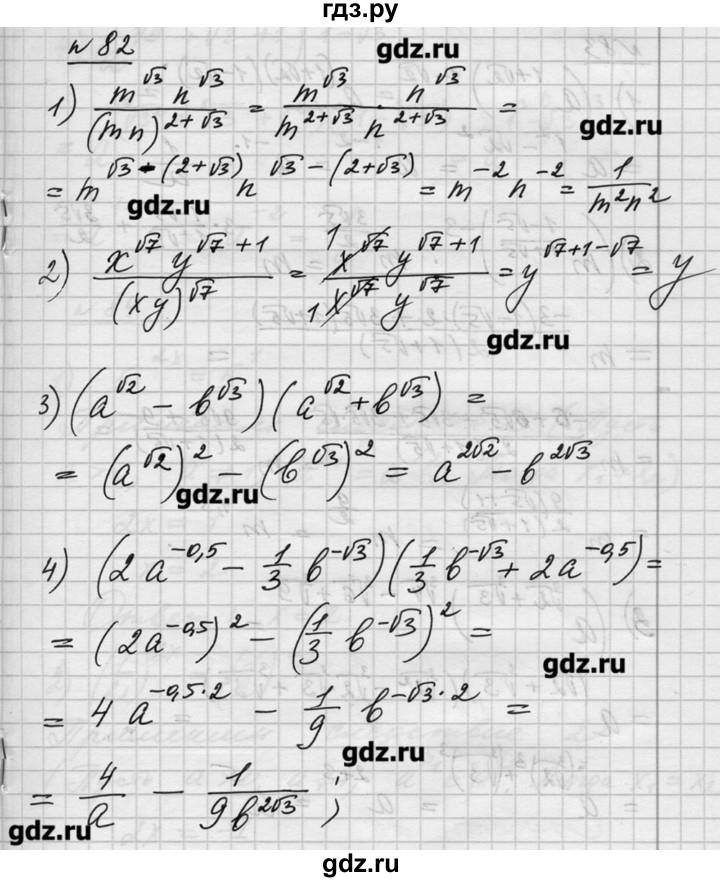 гдз.ру
№ 82
gdz.ru
1) m^√3 n^√3 / (mn)^(2+√3) = m^√3 · n^√3 / m^(2+√3) n^(2+√3) =
gdz.ru
= m^(√3-(2+√3)) n^(√3-(2+√3)) = m^-2 n^-2 = 1 / m^2n^2
gdz.ru
2) x^√7 y^(√7+1) / (xy)^√7 = 1 x^√7 y^(√7+1) / 1 x^√7 y^√7 = y^(√7+1-√7) = y
gdz.ru
3) (a^√2 - b^√3)(a^√2 + b^√3) =
= (a^√2)^2 - (b^√3)^2 = a^2√2 - b^2√3
gdz.ru
4) (2a^-0,5 - 1/3 b^-√3)(1/3 b^-√3 + 2a^-0,5) =
= (2a^-0,5)^2 - (1/3 b^-√3)^2 =
gdz.ru
= 4 a^(-0,5·2) - 1/9 b^(-√3·2) =
gdz.ru
= 4/a - 1/9b^2√3 ;
gdz.ru
gdz.ru